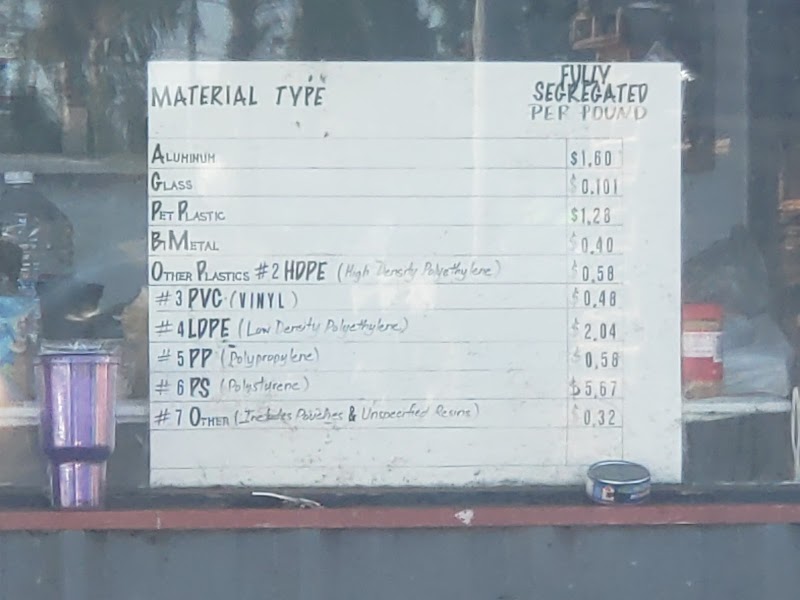 MATERIAL TYPE
FULLY
SEGREGATED
PER POUND
ALUMINUM $1.60
GLASS $0.101
PET PLASTIC $1.28
BI METAL $0.40
OTHER PLASTICS #2 HDPE (High Density Polyethylene) $0.58
#3 PVC (VINYL) $0.48
#4 LDPE (Low Density Polyethylene) $2.04
#5 PP (Polypropylene) $0.58
#6 PS (Polysturene) $5.67
#7 OTHER (Includes Pouches & Unspecified Resins) $0.32